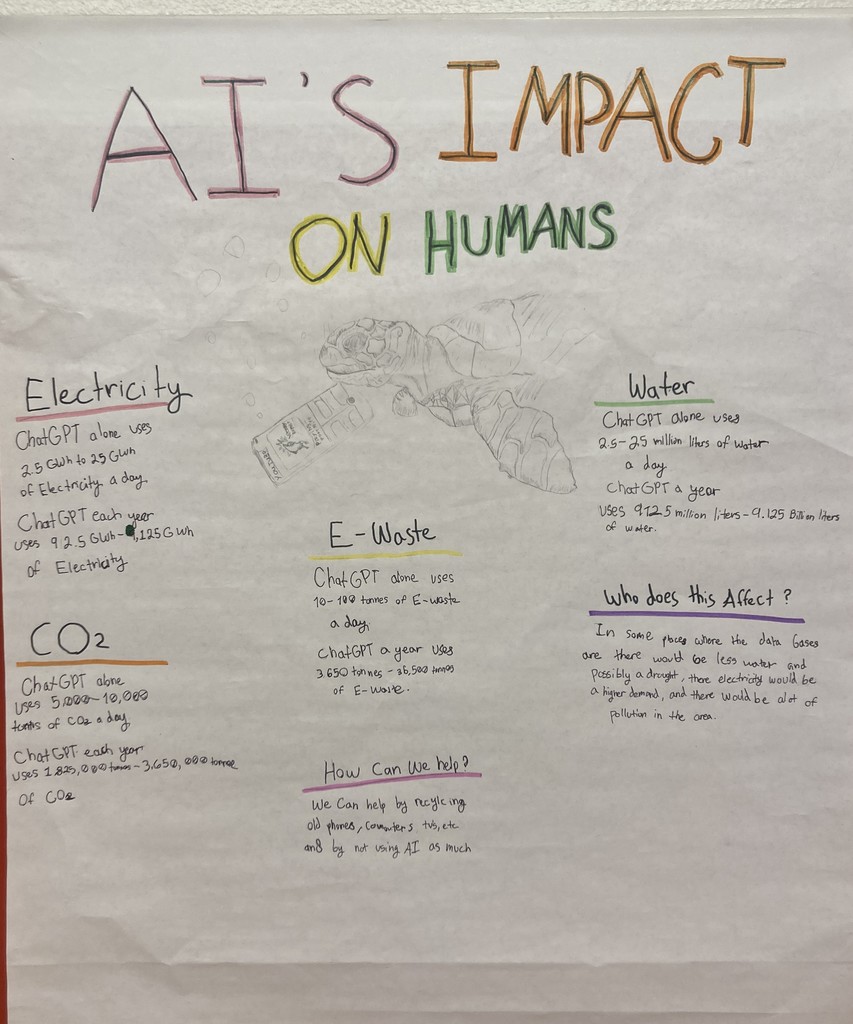 AI'S IMPACT
ON HUMANS
Electricity
ChatGPT alone uses
2.5 GWh to 25 GWh
of Electricity a day
ChatGPT each year
uses 912.5 GWh - 9,125 GWh
of Electricity
CO2
ChatGPT alone
uses 5,000-10,000
tonns of CO2 a day
ChatGPT each year
uses 1,825,000 tonnes - 3,650,000 tonnse
Of CO2
E-Waste
ChatGPT alone uses
10-100 tonnes of E-waste
a day
ChatGPT a year uses
3.650 tonnes - 36,500 tonnes
of E-Waste.
How Can We help?
We Can help by recylcing
old phones, Computers tvs, etc
and by not using AI as much
Water
ChatGPT alone uses
2.5-25 million liters of water
a day
ChatGPT a year
uses 912.5 million liters - 9.125 Billion liters
of water.
Who does this Affect?
In some places where the data bases
are there would be less water and
possibly a drought, there electricity would be
a higher demand, and there would be alot of
pollution in the area.